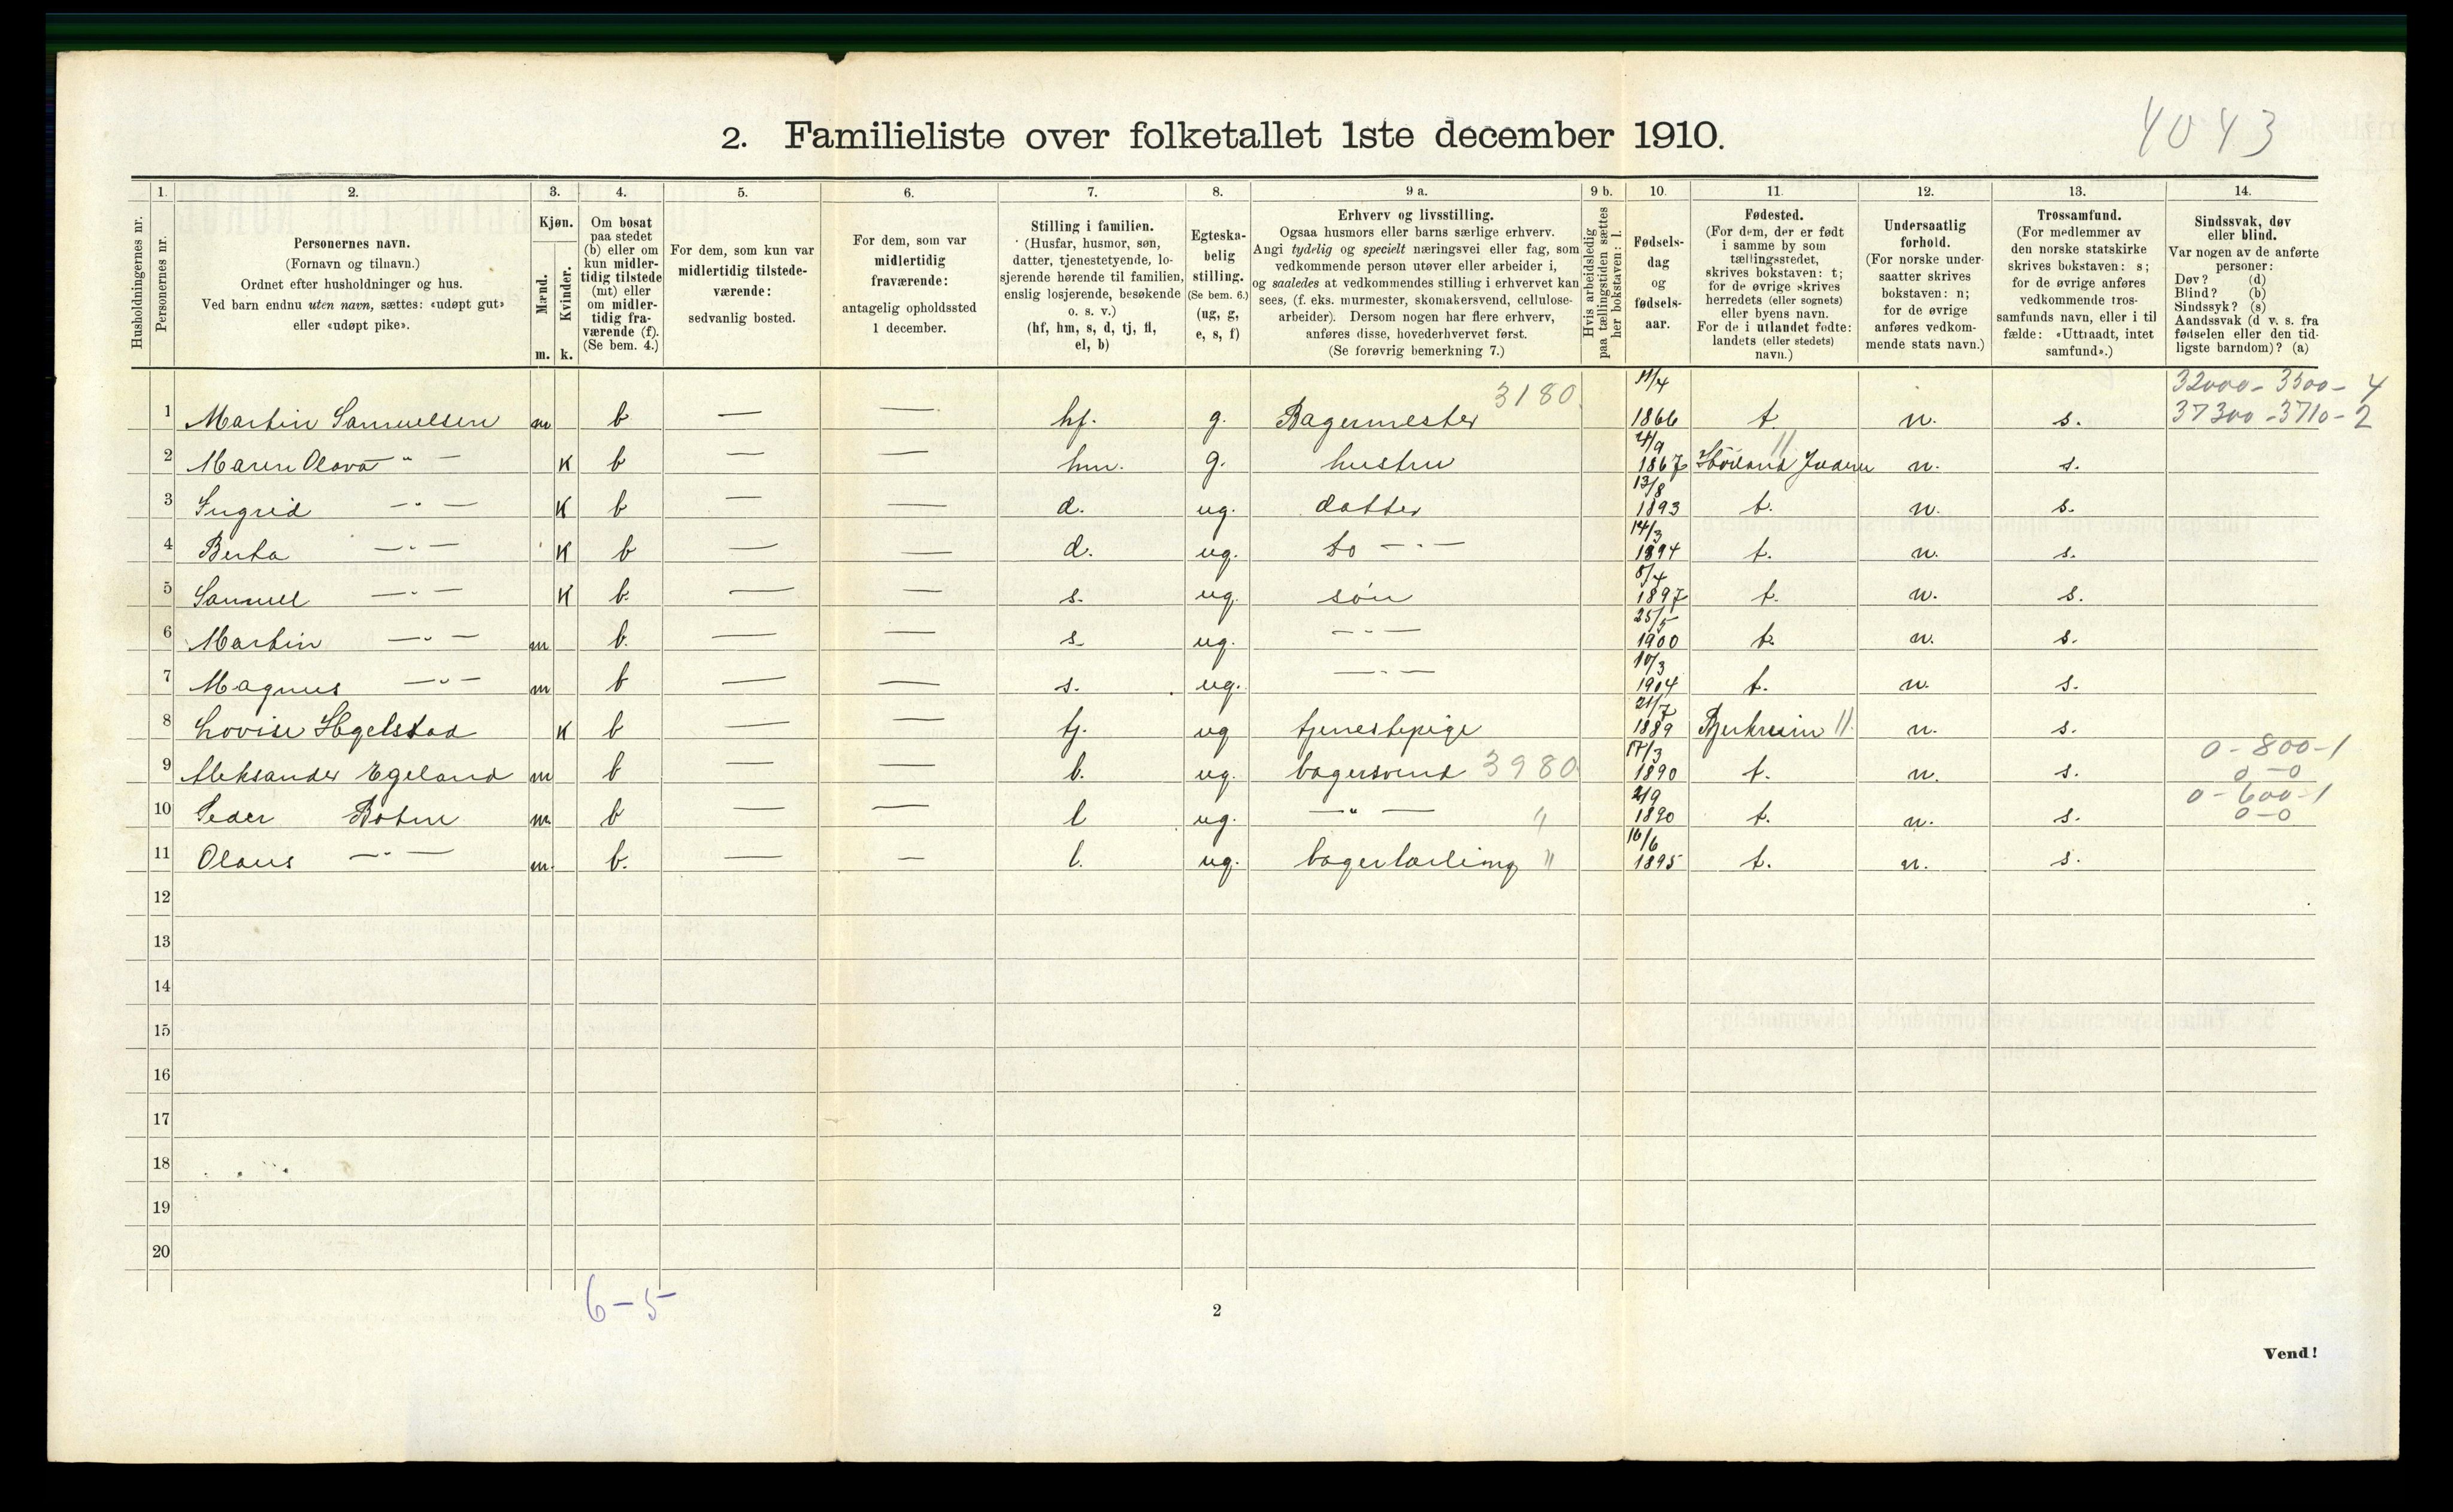 4043
2. Familieliste over folketallet 1ste december 1910.
Husholdningernes nr.
1. Personernes nr.
2. Personernes navn. (Fornavn og tilnavn.) Ordnet efter husholdninger og hus. Ved barn endnu uten navn, sættes: «udøpt gut» eller «udøpt pike».
3. Kjøn. Mænd. m. Kvinder. k.
4. Om bosat paa stedet (b) eller om kun midlertidig tilstede (mt) eller om midlertidig fraværende (f). (Se bem. 4.)
5. For dem, som kun var midlertidig tilstedeværende: sedvanlig bosted.
6. For dem, som var midlertidig fraværende: antagelig opholdssted 1 december.
7. Stilling i familien. (Husfar, husmor, søn, datter, tjenestetyende, losjerende hørende til familien, enslig losjerende, besøkende o. s. v.) (hf, hm, s, d, tj, fl, el, b)
8. Egteskabelig stilling. (Se bem. 6.) (ug, g, e, s, f)
9 a. Erhverv og livsstilling. Ogsaa husmors eller barns særlige erhverv. Angi tydelig og specielt næringsvei eller fag, som vedkommende person utøver eller arbeider i, og saaledes at vedkommendes stilling i erhvervet kan sees, (f. eks. murmester, skomakersvend, cellulosearbeider). Dersom nogen har flere erhverv, anføres disse, hovederhvervet først. (Se forøvrig bemerkning 7.)
9 b. Hvis arbeidsledig paa tællingstiden sættes her bokstaven: l.
10. Fødselsdag og fødselsaar.
11. Fødested. (For dem, der er født i samme by som tællingsstedet, skrives bokstaven: t; for de øvrige skrives herredets (eller sognets) eller byens navn. For de i utlandet fødte: landets (eller stedets) navn.)
12. Undersaatlig forhold. (For norske undersaatter skrives bokstaven: n; for de øvrige anføres vedkommende stats navn.)
13. Trossamfund. (For medlemmer av den norske statskirke skrives bokstaven: s; for de øvrige anføres vedkommende trossamfunds navn, eller i tilfælde: «Uttraadt, intet samfund».)
14. Sindssvak, døv eller blind. Var nogen av de anførte personer: Døv? (d) Blind? (b) Sindssyk? (s) Aandssvak (d v. s. fra fødselen eller den tidligste barndom)? (a)
1 Martin Samuelsen m b — — hf. g. Bagermester 3180 11/4 1866 t n. s. 32000 - 3500 - 4 37300 - 3710 - 2
2 Maren Olava " — K b — — hm. g. hustru 4/9 1867 Höiland Jæderen 11 n. s.
3 Ingrid — " — K b — — d. ug. datter 13/8 1893 t. n. s.
4 Berta — " — K b — — d. ug. do — " — 14/3 1894 t. n. s.
5 Samuel — " — K b. — — s. ug. søn 8/4 1897 t. n. s.
6 Martin — " — m b. — — s. ug. — " — 25/5 1900 t. n. s.
7 Magnus — " — m b — — s. ug. — " — 10/3 1904 t. n. s.
8 Lovise Hgelstad K b — — tj. ug tjenestepige 21/7 1889 Bjerkreim 11. n. s.
9 Aleksander Egeland m b — — l. ug. bagersvend 3980 17/3 1890 t. n. s. 0 - 800 - 1 0 - 0
10 Peder Botne m b — — l ug. — " — " 2/9 1890 t. n. s. 0 - 600 - 1 0 - 0
11 Olaus — " — m. b. — — l. ug. bagerlærling " 16/6 1895 t. n. s.
12
13
14
15
16
17
18
19
20
6 - 5
2
Vend!